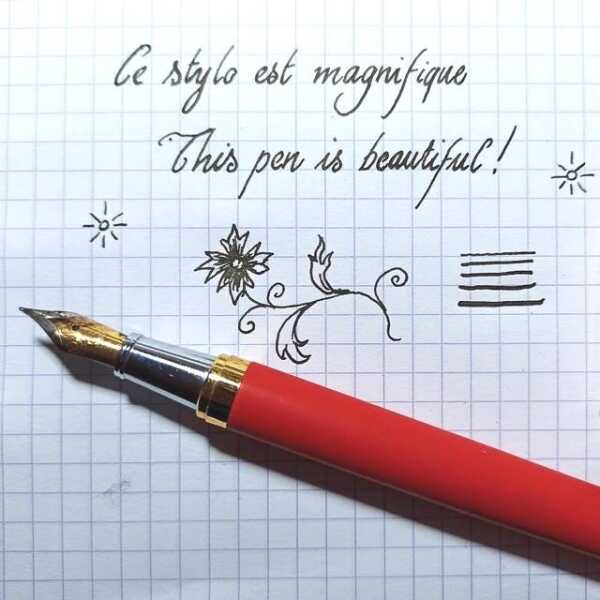 Ce stylo est magnifique
This pen is beautiful!